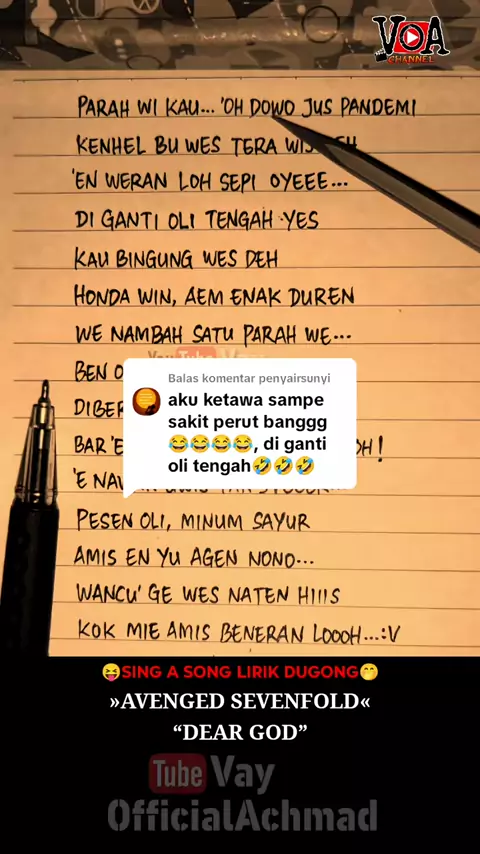 VOA
CHANNEL
PARAH WI KAU... 'OH DOWO JUS PANDEMI
KENHEL BU WES TERA
'EN WERAN LOH SEPI OYEEE...
DI GANTI OLI TENGAH YES
KAU BINGUNG WES DEH
HONDA WIN, AEM ENAK DUREN
WE NAMBAH SATU PARAH WE...
YouTube Vay
BEN
Balas komentar penyairsunyi
aku ketawa sampe
sakit perut banggg
😂😂😂😂, di ganti
oli tengah🤣🤣🤣
PESEN OLI, MINUM SAYUR
AMIS EN YU AGEN NONO...
WANCU' GE WES NATEN HIIIS
KOK MIE AMIS BENERAN LOOOH...:V
😝SING A SONG LIRIK DUGONG🤭
»AVENGED SEVENFOLD«
“DEAR GOD”
Tube Vay
OfficialAchmad